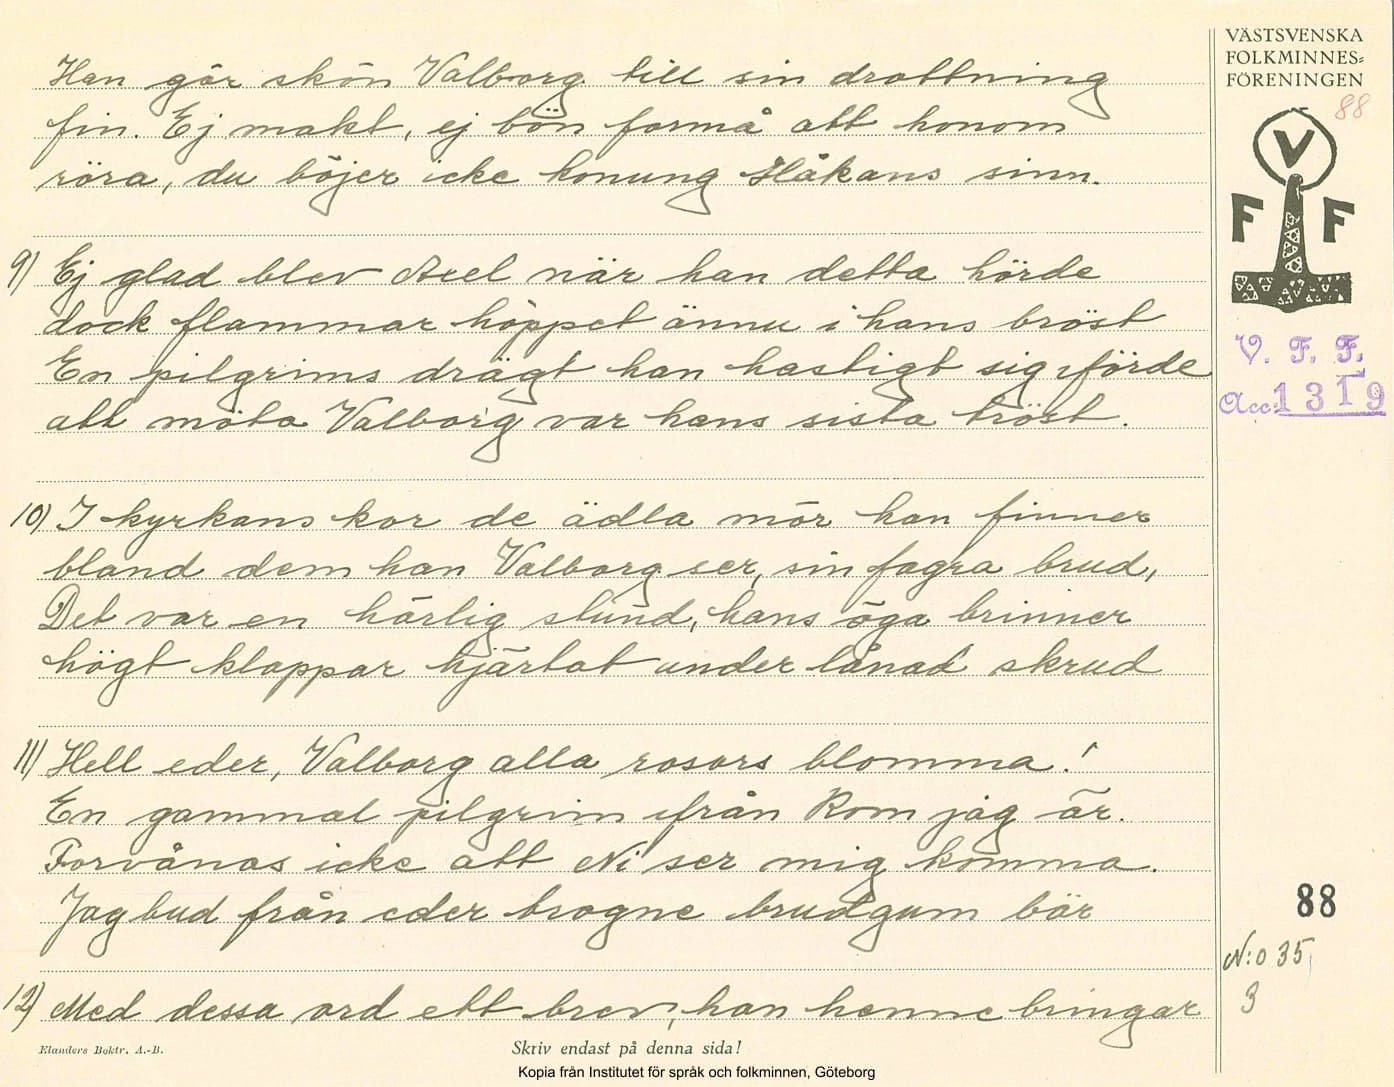 Han gör skön Valborg till sin drottning
fin. Ej makt, ej bön förmå att honom
röra, du böjer icke konung Håkans sinn.
9) Ej glad blev Axel när han detta hörde
dock flammar hoppet ännu i hans bröst
En pilgrims drägt han hastigt sig iförde
att möta Valborg var hans sista tröst.
10) I kyrkans kor de ädla mör han finner
bland dem han Valborg ser, sin fagra brud,
Det var en härlig stund, hans öga brinner
högt klappar hjärtat under lånad skrud
11) Hell eder, Valborg alla rosors blomma!
En gammal pilgrim ifrån Rom jag är.
Forvånas icke att Ni ser mig komma.
Jag bud från eder trogne brudgum bär
12) Med dessa ord ett brev, han henne bringar
Elanders Boktr. A.-B.
Skriv endast på denna sida!
Kopia från Institutet för språk och folkminnen, Göteborg
VÄSTSVENSKA
FOLKMINNES-
FÖRENINGEN
88
V
F F
V. F. F.
Acc: 1319
88
N:o 35
3